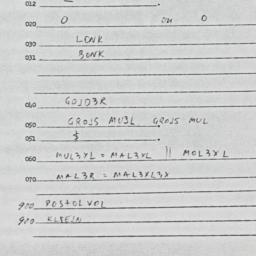 012
020 O on O
030 LENK
031 BONK
040 GOJD3R
050 GROJS MU3L GROJS MUL
051 $
060 MUL3XL = MAL3XL || MOL3XL
070 MAL3R = MAL3XL3X
900 POSTOLVOL
900 KLEEJN